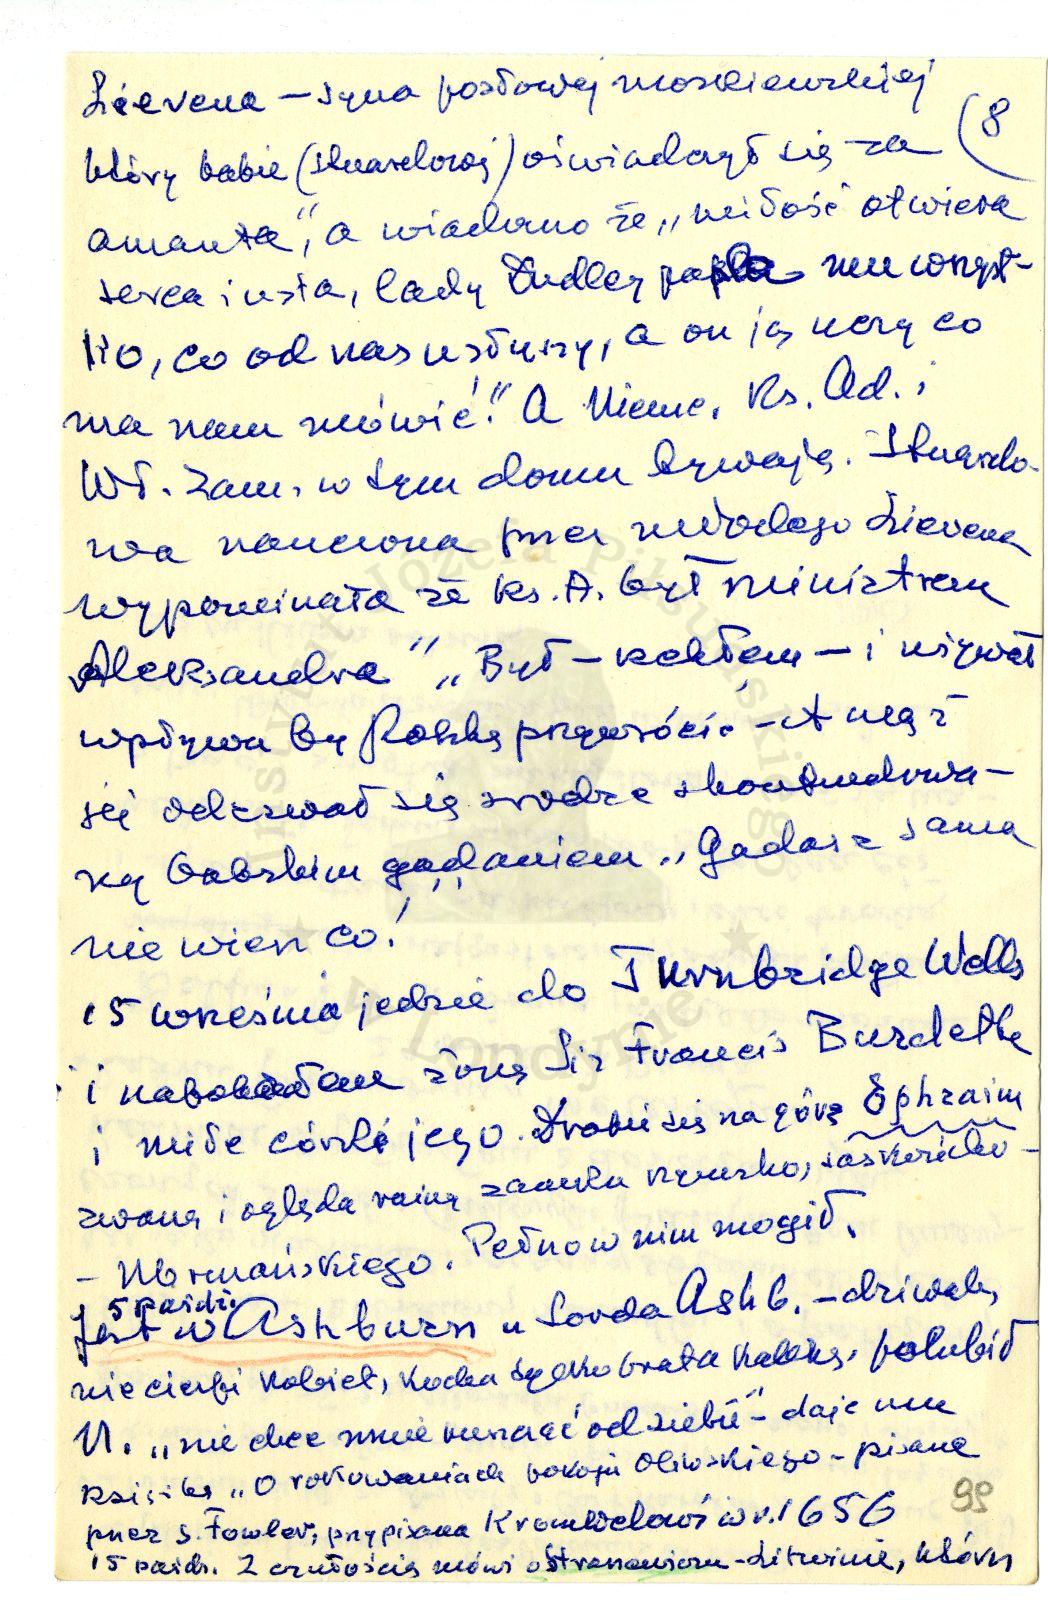 Lievena – syna posłowej moskiewskiej
(8
który babie (Stuardowej) oświadczył się za
amanta", a wiadomo że „miłość otwiera
serca i usta, lady Dudley papla mu wszyst-
ko, co od nas usłyszy, a on ją uczy co
ma nam mówić." A Niemc. Ks. Ad. i
Wł. Zam. w tym domu bywają. Stuardo-
wa nauczona przez młodego Lievena
wypominała że ks. A. był ministrem
Aleksandra" „Był – rzekłem – i używał
wpływu by Polskę przywrócić – A mąż
jej odezwał się srodze skontundowa-
ny babskim gadaniem „Gadasz sama
nie wiesz co!"
15 września jedzie do Turnbridge Wells
i nabokadłem żonę Sir Francis Burdetta
i miłe córki jego. Drobił się na górę Ephraim
zwaną i ogląda ruinę zamku rzymsko, saskoricko-
– Normańskiego. Pełno w nim mogił.
5 paźdz.
Jest w Ashburn u Lorda Ashb. – dziwak,
nie cierpi kobiet, kocha tylko brata kalekę, polubił
N. „nie chce mnie puszczać od siebie" – daje mu
książkę „O rokowaniach pokoju Oliwskiego – pisane
przez S. Fowler, przypisana Kromwelowi w r. 1656
15 paźdz. Z czułością mówi o Stranowiczu – Litwinie, który
92
Instytut Józefa Piłsudskiego
w Londynie